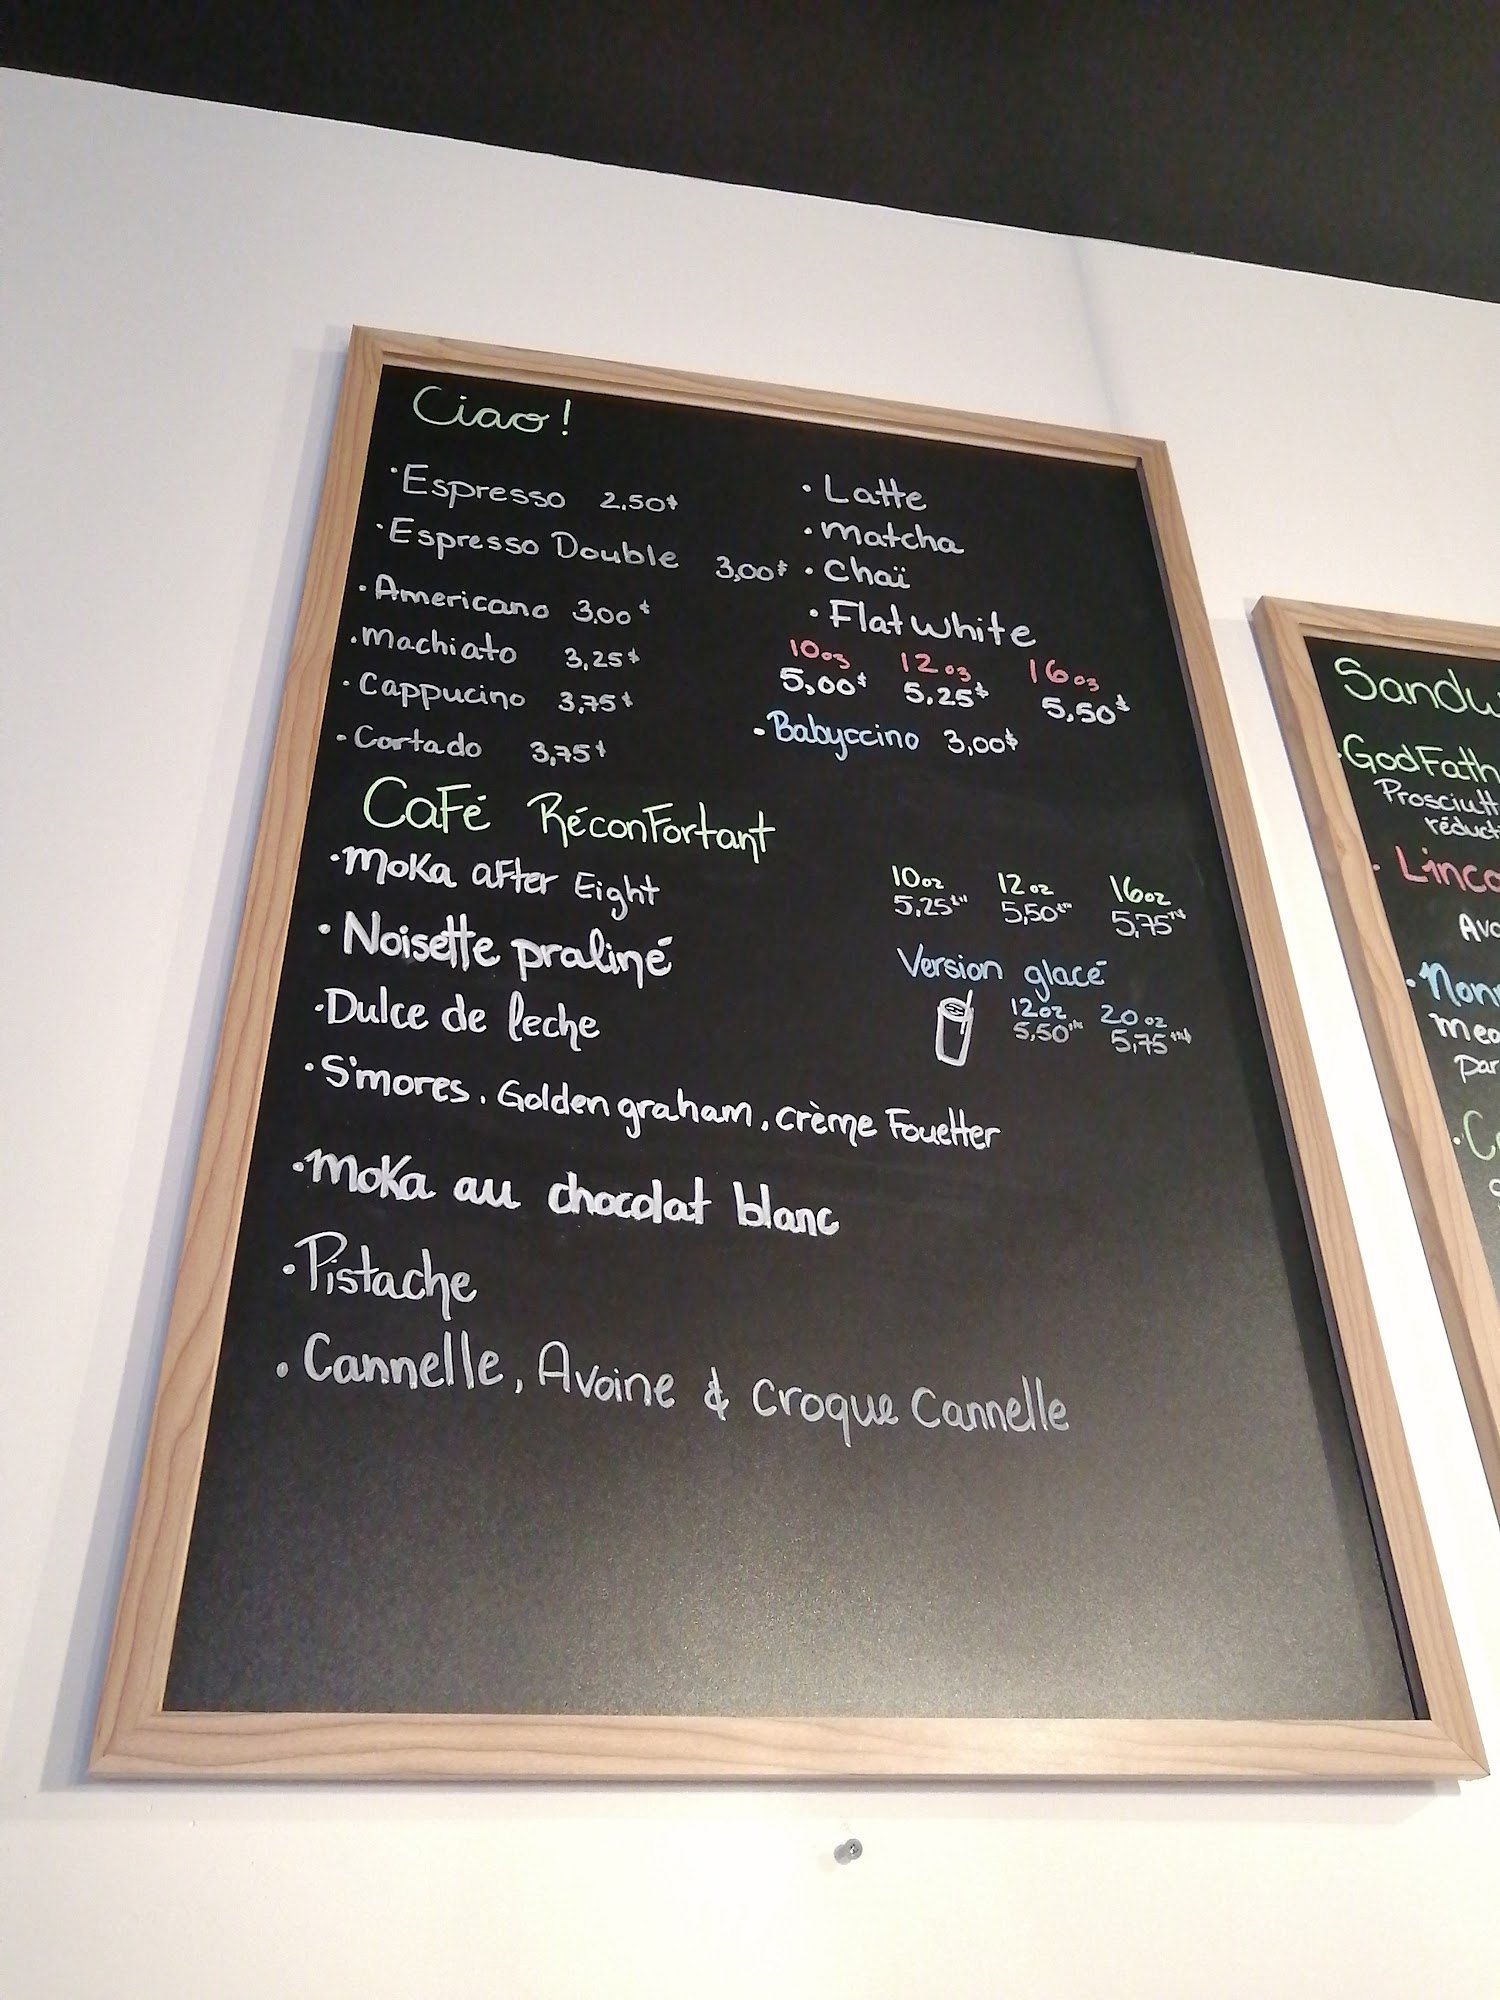 Ciao!
• Espresso 2,50$
• Espresso Double 3,00$
• Americano 3,00$
• Machiato 3,25$
• Cappucino 3,75$
• Cortado 3,75$
• Latte
• Matcha
• Chaï
• Flat white
10oz 12oz 16oz
5,00$ 5,25$ 5,50$
• Babyccino 3,00$
Café Réconfortant
• Moka after Eight
• Noisette praliné
• Dulce de leche
• S'mores. Golden graham, crème Fouetter
• Moka au chocolat blanc
• Pistache
• Cannelle, Avoine & Croque Cannelle
10oz 12oz 16oz
5,25 5,50 5,75
Version glacé
12oz 20oz
5,50 5,75
• GodFath
Prosciutt
réduct
• Linco
Avo
• Nonn
par